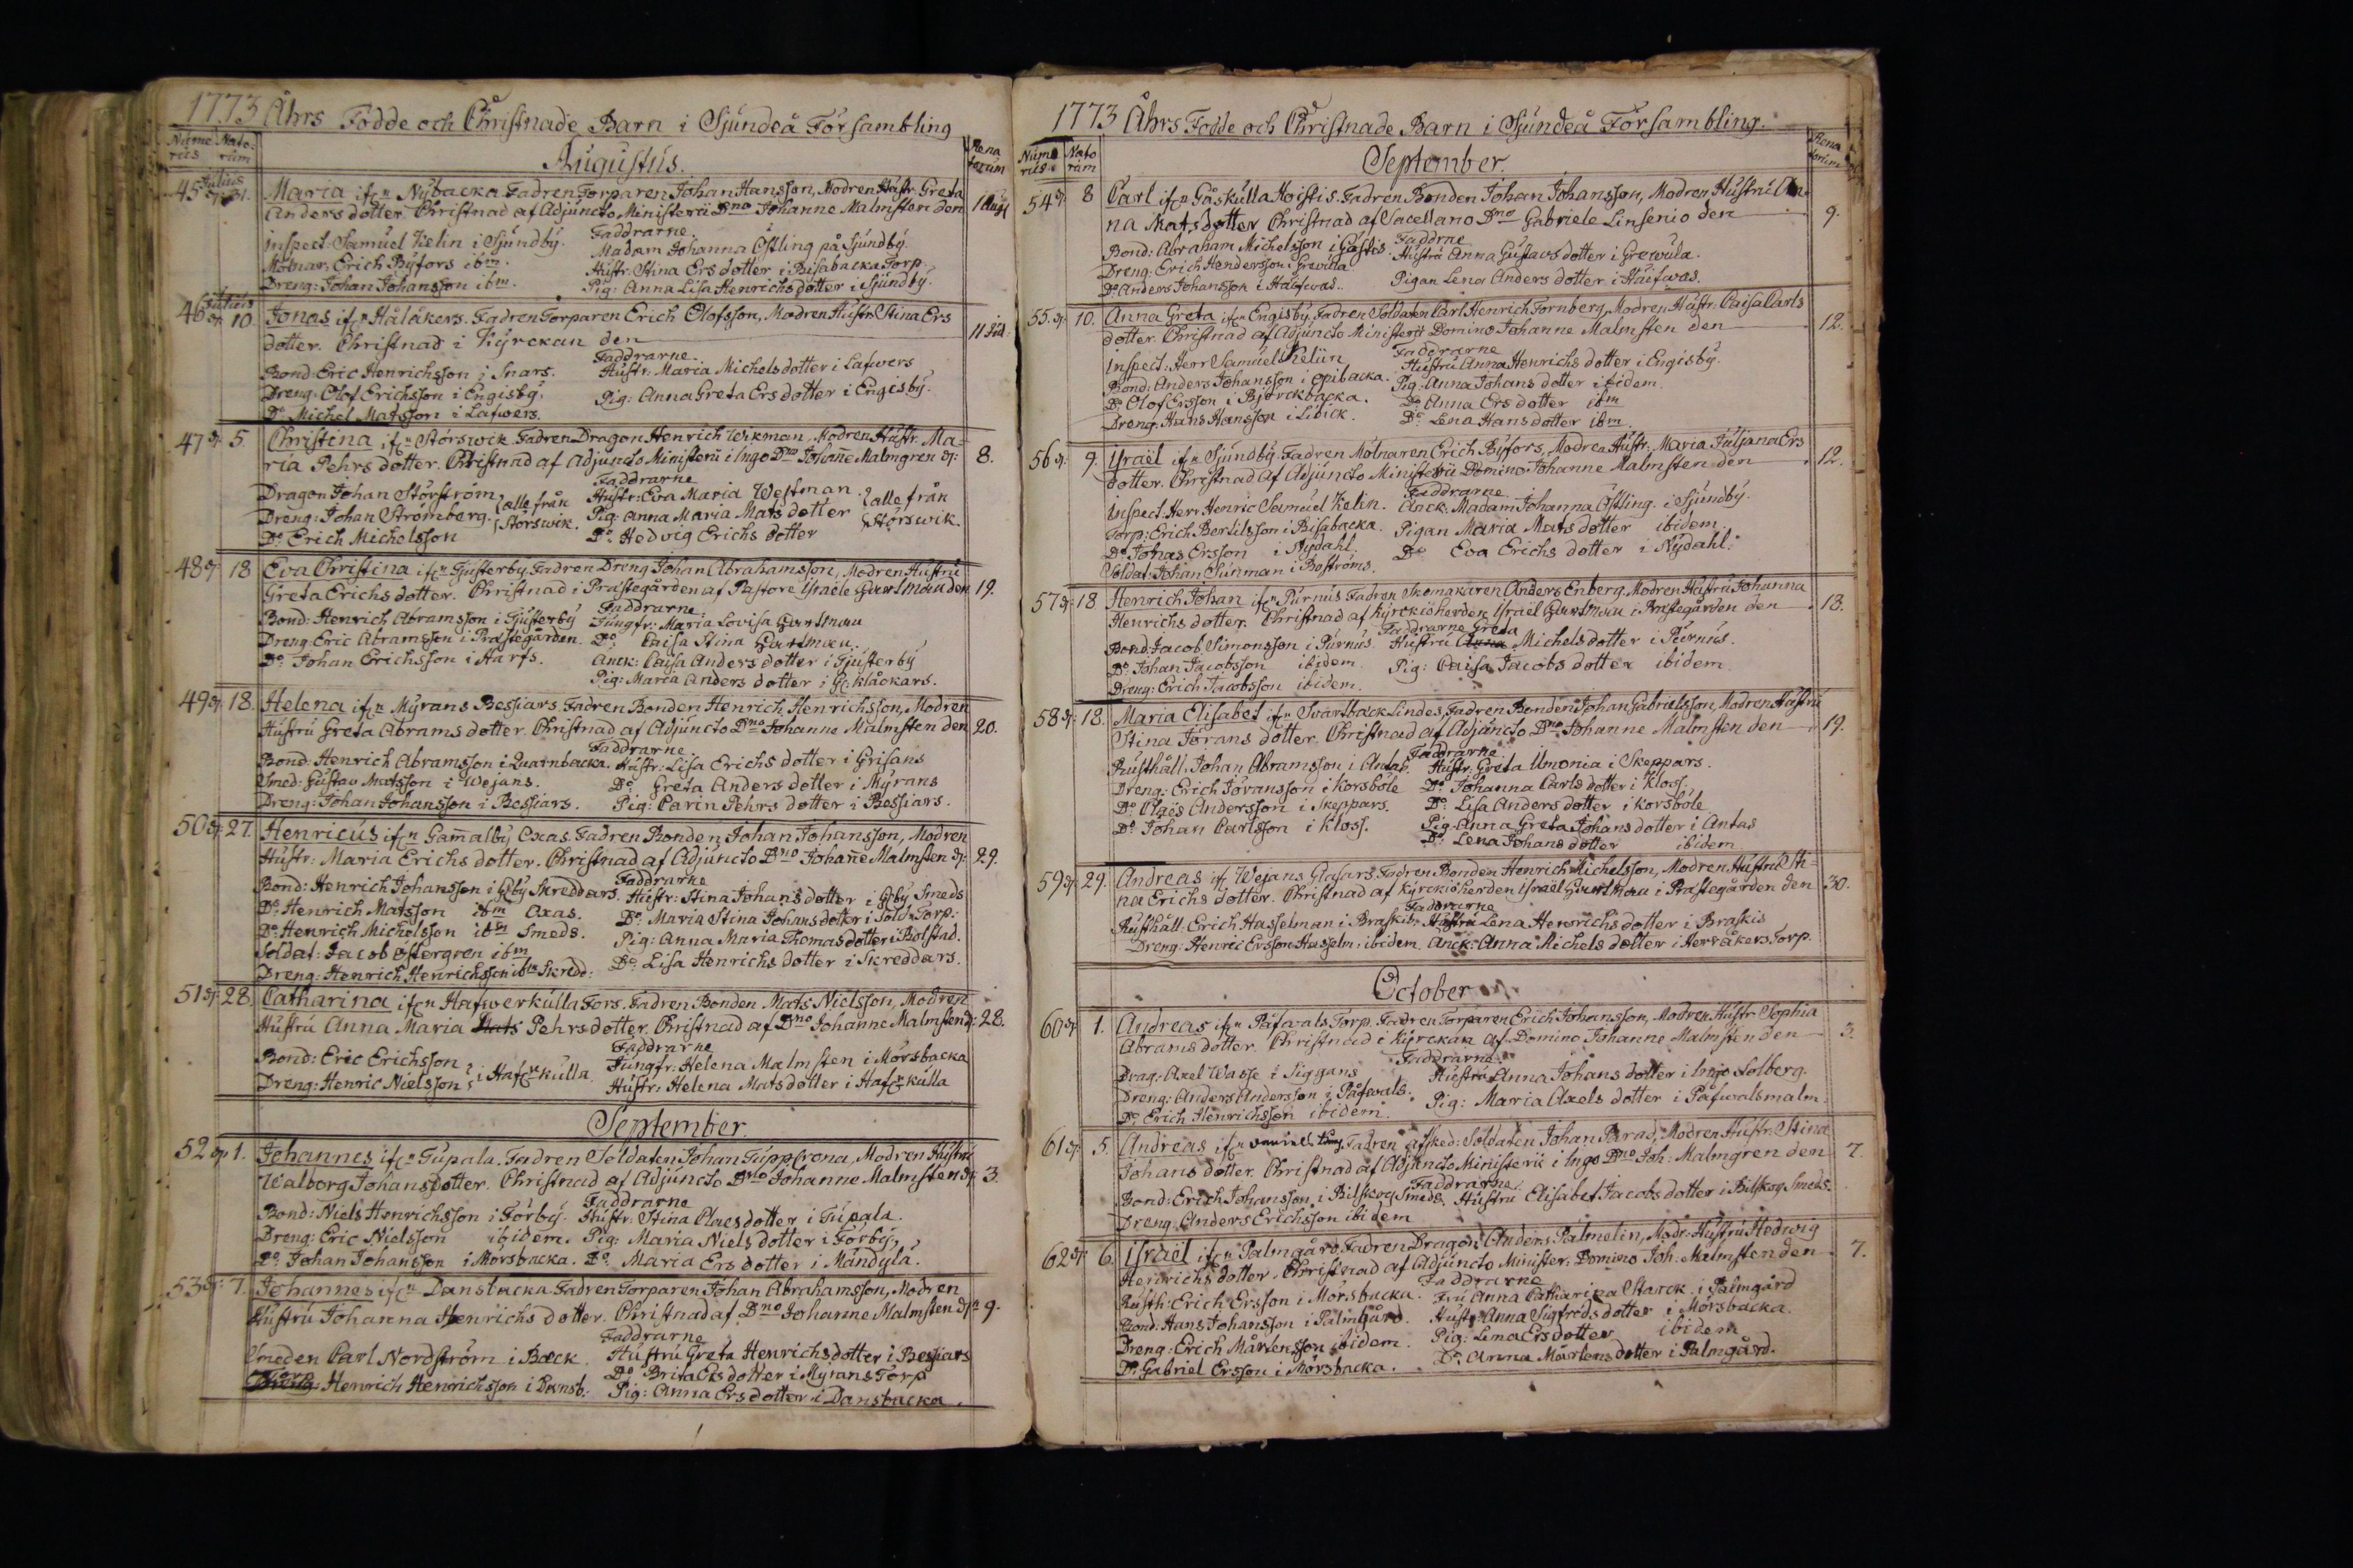 1773 Åhrs Födde och Christnade Barn i Sjundeå Försambling
Nume Nato-
rus rum
Augustus.
Rena
torum
45 Julius 31. Maria ifrn Nybacka Fadren Torparen Johan Hansson, Modren Hustr. Greta
Anders dotter. Christnad af Adjuncto Ministerii Dno Johanne Malmsten den 1 Aug.
Faddrarne.
Inspect: Samuel Kelin i Sjundby. Madam Johanna Östling på Sjundby.
Mölnar. Erich Byfors ibm. Hustr. Stina Ers dotter i Bisabacka Torp.
Dreng: Johan Johansson ibm. Pig: Anna Lisa Henrichs dotter i Sjundby.
46 Julius 10. Jonas ifrn Hålåkers. Fadren Torparen Erich Olofsson, Modren Hustr Stina Ers
dotter. Christnad i Kyrckan den 11 Jul.
Faddrarne.
Bond: Eric Henrichsson i Snars. Hustr: Maria Michels dotter i Lafvers
Dreng: Olof Erichsson i Engisby. Pig: Anna Greta Ers dotter i Engisby.
Do Michel Matsson i Lafwers.
47 5. Christina ifrn Störswik. Fadren Dragon Henrich Wikman, Modren Hustr. Ma-
ria Pehrs dotter. Christnad af Adjuncto Ministerii i Ingo Dno Johañe Malmgren d: 8.
Faddrarne
Dragon Johan Störström, alle från Hustr: Eva Maria Westman. alle från
Dreng: Johan Strömberg. Störswik. Pig: Anna Maria Mats dotter Störswik.
Do Erich Michelsson Do Hedvig Erichs dotter
48 18 Eva Christina ifrn Gjusterby. Fadren Dreng Johan Abrahamsson, Modren Hustru
Greta Erichs dotter. Christnad i Prästegården af Pastore Israele Gurtman den 19.
Faddrarne.
Bond: Henrich Abramsson i Gjusterby Jungfr: Maria Lovisa Gurtman
Dreng Eric Abramsson i Prästegården. Do Caisa Stina Gurtman.
Do Johan Erichsson i Harfs. Anck: Caisa Anders dotter i Gjusterby
Pig: Maria Anders dotter i klåckars.
49 18. Helena ifrn Myrans Bessiars Fadren Bonden Henrich Henrichsson, Modren
Hustru Greta Abrams dotter. Christnad af Adjuncto Dno Johanne Malmsten den 20.
Faddrarne.
Bond: Henrich Abramsson i Quarnbacka. Hustr: Lisa Erichs dotter i Grisans
Smed: Gustav Matsson i Wejans. Do Greta Anders dotter i Myrans
Dreng: Johan Johansson i Bessiars. Pig: Carin Pehrs dotter i Bessiars.
50 27. Henricus ifrn Gam̃alby Oxas. Fadren Bonden Johan Johansson, Modren
Hustr: Maria Erichs dotter. Christnad af Adjuncto Dno Johañe Malmsten d: 29.
Faddrarne
Bond: Henrich Johansson i Gby Skreddars. Hustr: Stina Johans dotter i Gby Smeds
Do Henrich Matsson ibm Oxas. Do: Maria Stina Johans dotter i Sold: Torp.
Do Henrich Michelsson ibm Smeds. Pig: Anna Maria Thomas dotter i Bolstad.
Soldat: Jacob Östergren ibm Do: Lisa Henrichs dotter i Skreddars.
Dreng: Henrich Henrichsson ibm Skredd:
51 28. Catharina ifrn Hafwerkulla Fors. Fadren Bonden Mats Nielsson, Modren
Hustru Anna Maria Mats Pehrsdotter. Christnad af Dno Johanne Malmsten d: 28.
Faddrarne
Bond: Eric Erichsson i Hafrkulla Jungfr: Helena Malmsten i Mörsbacka
Dreng: Henric Nielsson Hustr: Helena Matsdotter i Hafrkulla
September.
52 1. Johannes ifrn Tupala. Fadren Soldaten Johan Tuppfrona, Modren Hustru
Walborg Johansdotter. Christnad af Adjuncto Dno Johanne Malmsten d: 3.
Faddrarne
Bond: Niels Henrichsson i Förby. Hustr: Stina Claesdotter i Tupala.
Dreng: Eric Nielsson ibidem. Pig: Maria Niels dotter i Förby,
Do Johan Johansson i Mörsbacka. Do Maria Ers dotter i Mandyla.
53 7. Johannes ifrn Dansbacka. Fadren Torparen Johan Abrahamsson, Modren
Hustru Johanna Henrichs dotter. Christnad af Dno Johanne Malmsten dn 9.
Faddrarne
Smeden Carl Nordström i Bäck. Hustru Greta Henrichsdotter i Bessiars
Do Brita Ersdotter i Myrans Torp
Henrich Henrichsson i Dansb: Pig: Anna Ersdotter i Dansbacka.
1773 Åhrs Födde och Christnade Barn i Sjundeå Försambling.
Nume Nato
rus rum
September.
Rena
torum
54 8 Carl ifrn Gåskulla Hoistis. Fadren Bonden Johan Johansson, Modren Hustru An-
na Matsdotter Christnad af Sacellano Dno Gabriele Linsenio den 9.
Faddrne
Bond: Abraham Michelsson i Gästis. Hustru Anna Gustavs dotter i Grewula.
Dreng: Erich Hendersson i Grewula.
Do Anders Johansson i Haifwas. Pigan Lena Anders dotter i Haifwas.
55. 10. Anna Greta ifrn Engisby. Fadren Soldaten Carl Henrich Tornberg, Modren Hustr. Caisa Carls
dotter. Christnad af Adjuncto Ministerii Domino Johanne Malmsten den 12.
Faddrarne
Inspect: Herr Samuel Kelin Hustru Anna Henrichs dotter i Engisby.
Bond: Anders Johansson i Opibacka. Pig: Anna Johans dotter ibidem.
Do Olof Ersson i Björckbacka. Do Anna Ers dotter ibm
Dreng: Hans Hansson i Libick. Do: Lena Hans dotter ibm.
56 9. Israël ifrn Sjundby. Fadren Mölnaren Erich Byfors, Modren Hustr: Maria Juljana Ers
dotter. Christnad af Adjuncto Ministerii Domino Johanne Malmsten den 12.
Faddrarne
Inspect: Herr Henric Samuel Kelin. Anck: Madam Johanna Östling. i Sjundby.
Torp: Erich Bertilsson i Bisabacka. Pigan Maria Mats dotter ibidem.
Do Johas Ersson i Nydahl. Do Eva Erichs dotter i Nydahl.
Soldat: Johan Sunman i Boströms.
57 18 Henrich Johan ifrn Purnus Fadren Skomakaren Anders Enberg. Modren Hustru Johanna
Henrichs dotter. Christnad af Kyrckioherden Israël Gurtman i Prästegården den 18.
Faddrarne Greta
Bond: Jacob Simonsson i Purnus. Hustru Anna Michels dotter i Purnus.
Do Johan Jacobsson ibidem. Pig: Caisa Jacobs dotter ibidem.
Dreng: Erich Jacobsson ibidem.
58 18. Maria Elisabet ifrn Svartbäck Lindes, Fadren Bonden Johan Gabrielsson, Modren Hustru
Stina Jörans dotter. Christnad af Adjuncto Dno Johanne Malmsten den 19.
Faddrarne
Rusthåll. Johan Abramsson i Antas. Hustr. Greta Umonia i Skeppars.
Dreng: Erich Jöransson i Korsböle Do Johanna Carls dotter i Kloss.
Do Claës Andersson i Skeppars. Do Lisa Anders dotter i Korsböle
Do Johan Carlsson i Kloss. Pig. Anna Greta Johans dotter i Antas
Do Lena Johans dotter ibidem.
59 29. Andreas if. Wejans Glasars. Fadren Bonden Henrich Michelsson, Modren Hustru Sti-
na Erichs dotter. Christnad af Kyrckioherden Israël Gurtman i Prästegården den 30.
Faddrarne
Rusthåll. Erich Hasselman i Braskis. Hustru Lena Henrichs dotter i Braskis
Dreng: Henric Ersson Hasselm: ibidem. Anck: Anna Michels dotter i Herråkers Torp.
October
60 1. Andreas ifrn Påfwals Torp. Fadren Torparen Erich Johansson, Modren Hustr: Sophia
Abramsdotter. Christnad i Kyrckan af Domino Johanne Malmsten den 3.
Faddrarne.
Drag: Axel Wasse i Siggans Hustru Anna Johans dotter i Ingo Solberg.
Dreng: Anders Andersson i Påfwals. Pig: Maria Axels dotter i Påfwalsmalm.
Do Erich Henrichsson ibidem.
61 5. Andreas ifrn Daniels torp. Fadren Afsked: Soldaten Johan Parad, Modren Hustr. Stina
Johans dotter. Christnad af Adjuncto Ministerii i Ingo Dno Joh: Malmgren den 7.
Faddrarne.
Bond: Erich Johansson. i Bilskog Smeds. Hustru Elisabet Jacobs dotter i Bilskog Smeds.
Dreng. Anders Erichsson ibidem
62 6. Israël ifrn Palmgård. Fadren Dragon Anders Palmelin, Modr: Hustru Hedwig
Henrichs dotter. Christnad af Adjuncto Minister: Domino Joh: Malmsten den 7.
Faddrarne
Rusth: Erich Ersson i Mörsbacka. Fru Anna Catharina Starck i Palmgård
Bond: Hans Johansson i Palmgård. Hustr: Anna Sigfreds dotter i Mörsbacka.
Dreng: Erich Mårtensson ibidem. Pig: Lena Ersdotter ibidem
Do Gabriel Ersson i Mörsbacka. Do: Anna Mårtens dotter i Palmgård.